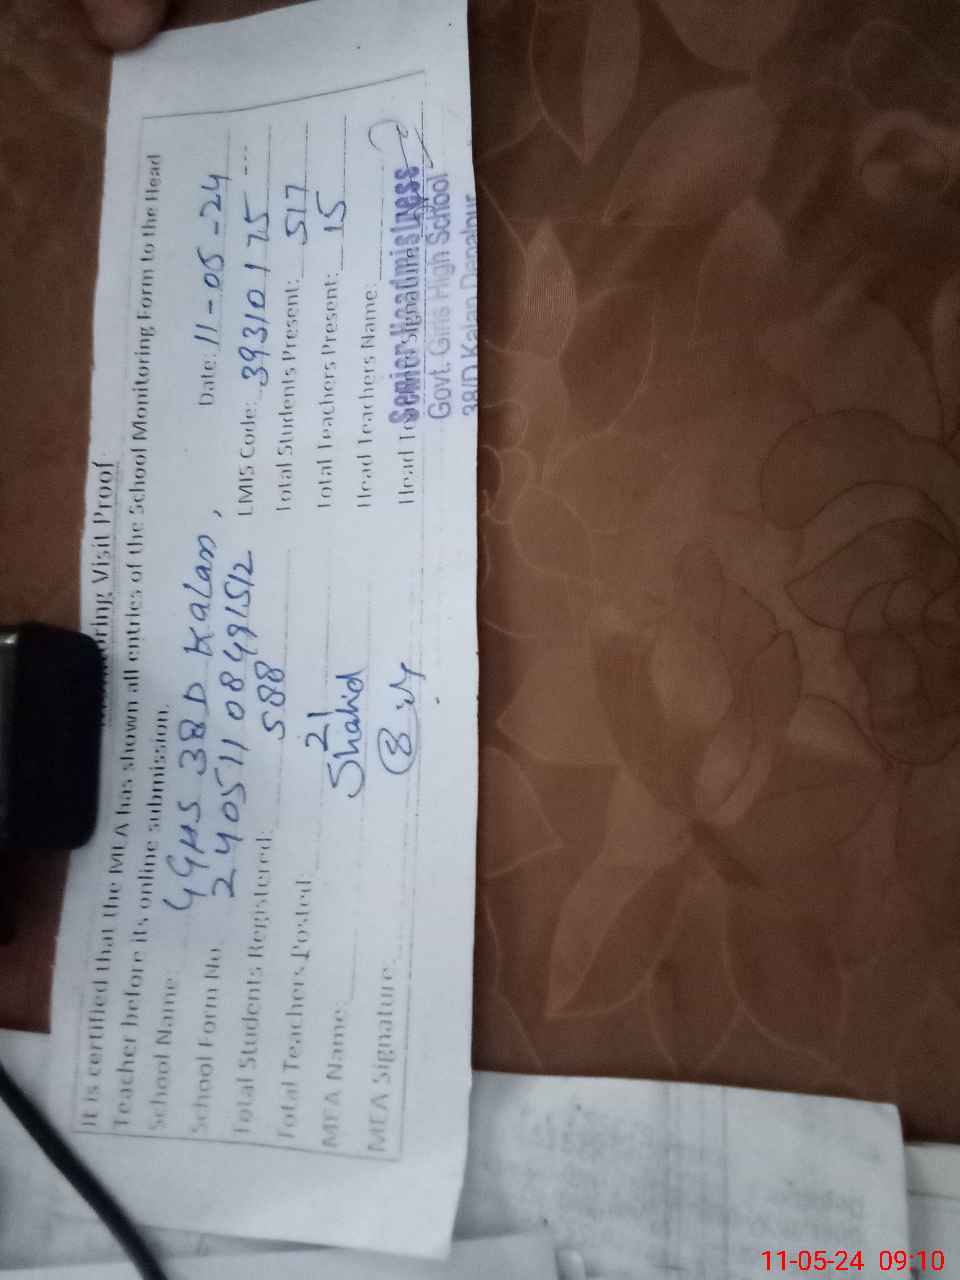 Monitoring Visit Proof
It is certified that the MEA has shown all entries of the School Monitoring Form to the Head
Teacher before its online submission.
School Name: GGHS 38 D Kalan, Date: 11-05-24
School Form No. 240511084491512 EMIS Code: 39310175
Total Students Registered: 588 Total Students Present: 517
Total Teachers Posted: 21 Total Teachers Present: 15
MEA Name: Shahid Head Teachers Name:
MEA Signature: Head Teachers Signature:
Senior Headmistress
Govt. Girls High School
38/D Kalan Depalpur
11-05-24 09:10